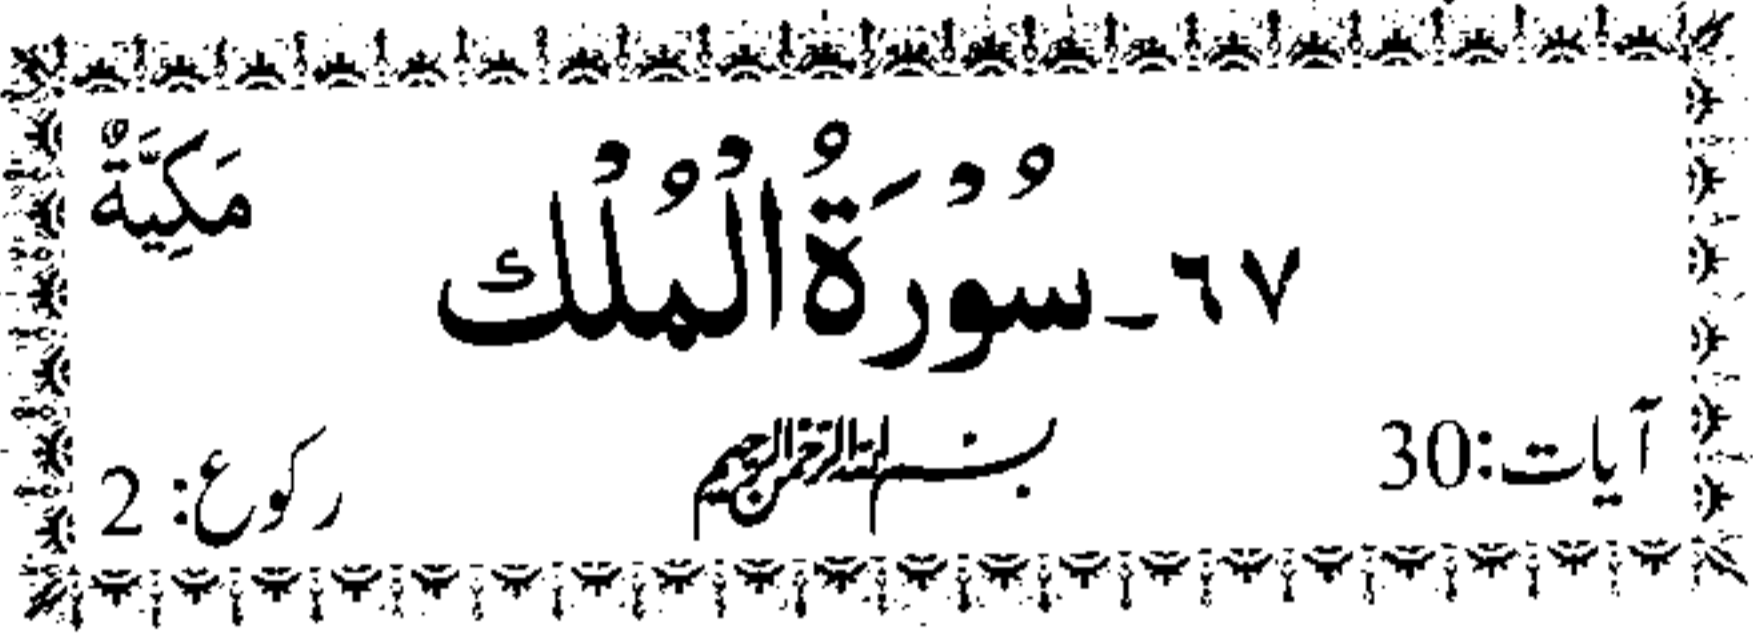 مَكِّيَّةٌ
٦٧ـ سُوْرَةُ الْمُلْك
آیات:30
بسم الله الرحمن الرحیم
رکوع: 2